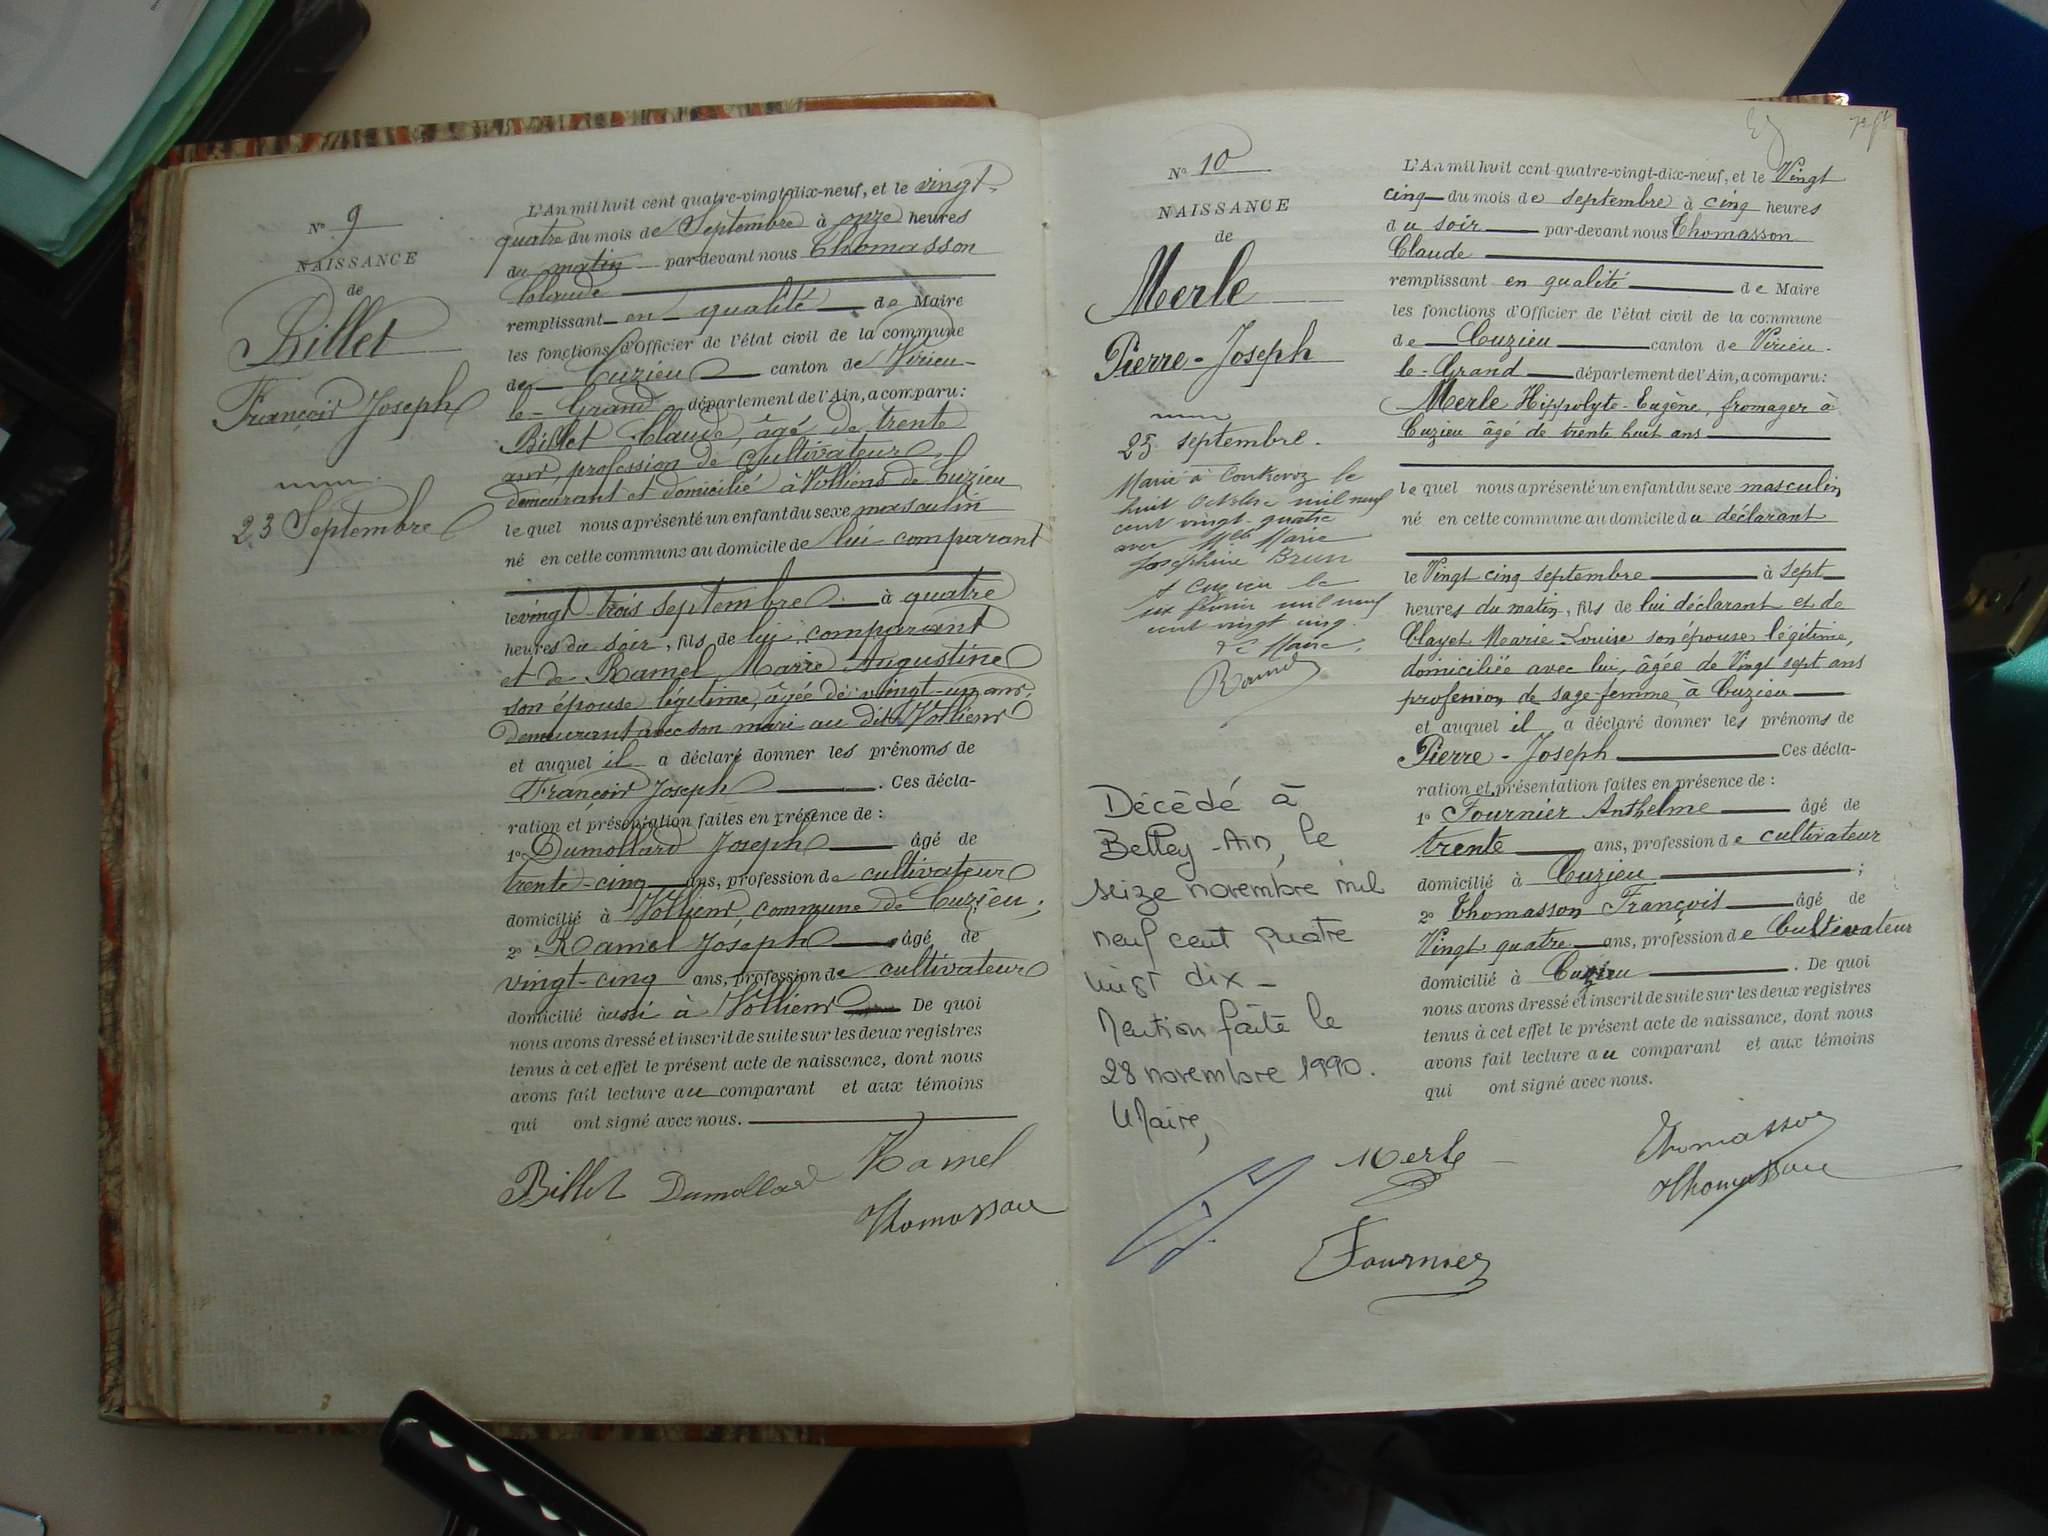 N° 9
NAISSANCE
de
Billet
François Joseph
23 Septembre
L'An mil huit cent quatre-vingt-dix-neuf, et le vingt-
quatre du mois de Septembre à onze heures
du matin par-devant nous Thomasson
Claude
remplissant en qualité de Maire
les fonctions d'Officier de l'état civil de la commune
de Cuzieu canton de Virieu-
le-Grand département de l'Ain, a comparu:
Billet Claude, âgé de trente
ans, profession de cultivateur
demeurant et domicilié à Volliens de Cuzieu
le quel nous a présenté un enfant du sexe masculin
né en cette commune au domicile de lui comparant
le vingt-trois septembre à quatre
heures du soir, fils de lui comparant
et de Ramel Marie Augustine
son épouse légitime, âgée de vingt-un ans,
demeurant avec son mari au dit Volliens
et auquel il a déclaré donner les prénoms de
François Joseph. Ces décla-
ration et présentation faites en présence de :
1° Dumollard Joseph âgé de
trente-cinq ans, profession de cultivateur
domicilié à Volliens, commune de Cuzieu ;
2° Ramel Joseph âgé de
vingt-cinq ans, profession de cultivateur
domicilié aussi à Volliens De quoi
nous avons dressé et inscrit de suite sur les deux registres
tenus à cet effet le présent acte de naissance, dont nous
avons fait lecture au comparant et aux témoins
qui ont signé avec nous.
Billet Dumollard Ramel
Thomasson
N° 10
NAISSANCE
de
Merle
Pierre-Joseph
25 septembre.
Marié à Conkeroz le
huit Octobre mil neuf
cent vingt-quatre
avec Melle Marie
Joséphine Brun
à Cuzieu le
six février mil neuf
cent vingt cinq.
Le Maire,
Décédé à
Belley-Ain, le
seize novembre mil
neuf cent quatre
vingt dix -
Mention faite le
28 novembre 1990.
L Maire,
L'An mil huit cent quatre-vingt-dix-neuf, et le Vingt
cinq du mois de septembre à cinq heures
du soir par-devant nous Thomasson
Claude
remplissant en qualité de Maire
les fonctions d'Officier de l'état civil de la commune
de Cuzieu canton de Virieu-
le-Grand département de l'Ain, a comparu:
Merle Hippolyte-Eugène, fromager à
Cuzieu âgé de trente huit ans
le quel nous a présenté un enfant du sexe masculin
né en cette commune au domicile du déclarant
le Vingt cinq septembre à sept
heures du matin, fils de lui déclarant et de
Clayet Marie-Louise son épouse légitime,
domiciliée avec lui, âgée de Vingt sept ans
profession de sage-femme, à Cuzieu
et auquel il a déclaré donner les prénoms de
Pierre-Joseph Ces décla-
ration et présentation faites en présence de :
1° Fournier Anthelme âgé de
trente ans, profession de cultivateur
domicilié à Cuzieu ;
2° Thomasson François âgé de
Vingt quatre ans, profession de Cultivateur
domicilié à Cuzieu. De quoi
nous avons dressé et inscrit de suite sur les deux registres
tenus à cet effet le présent acte de naissance, dont nous
avons fait lecture au comparant et aux témoins
qui ont signé avec nous.
Merle Thomasson
Thomasson
Fournier